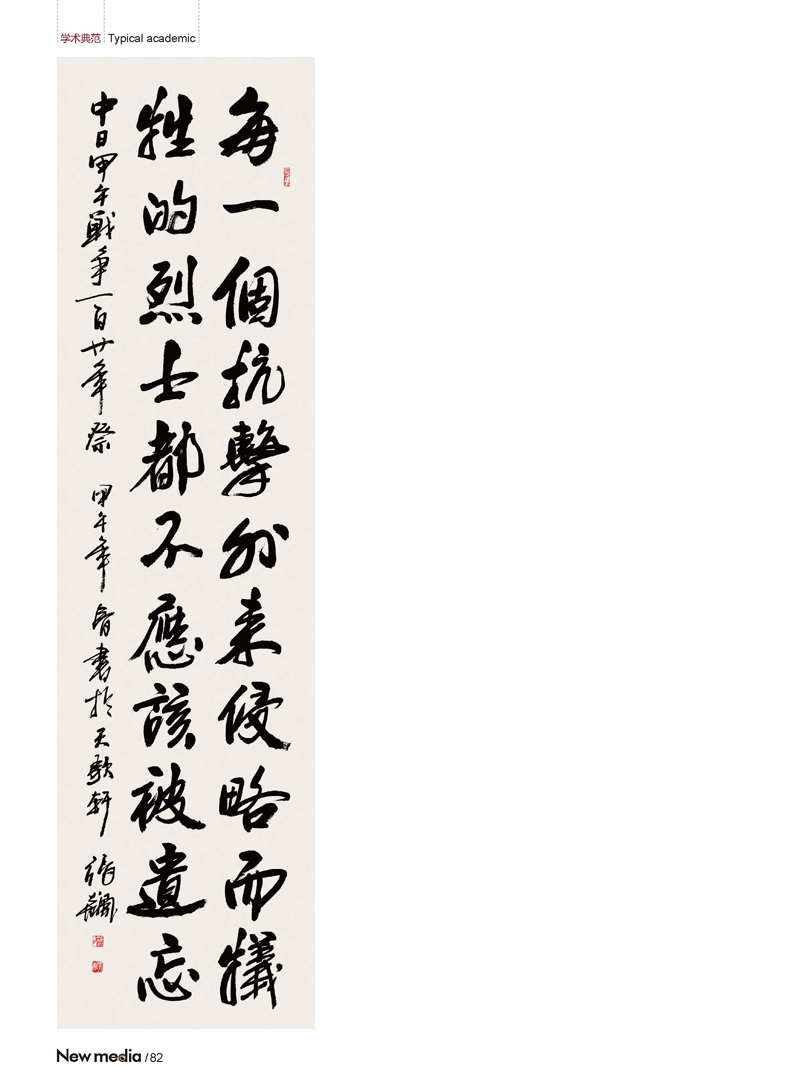 学术典范 Typical academic
每一個抗擊外来侵略而犧
牲的烈士都不應該被遺忘
中日甲午戰争一百廿年祭 甲午年 春書於天歌軒
New media /82